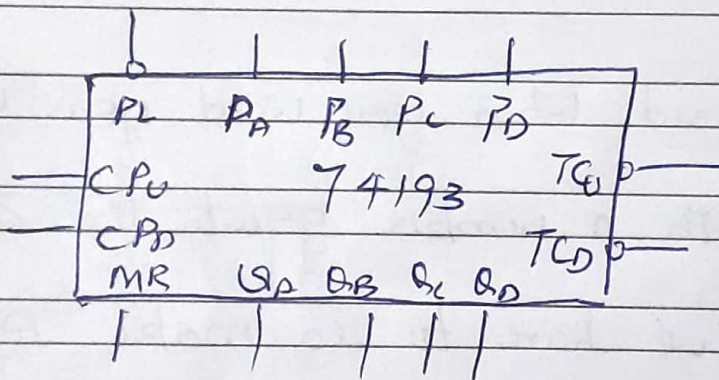 PL PA PB PC PD
CPU 74193 TCU
CPD TCD
MR QA QB QC QD